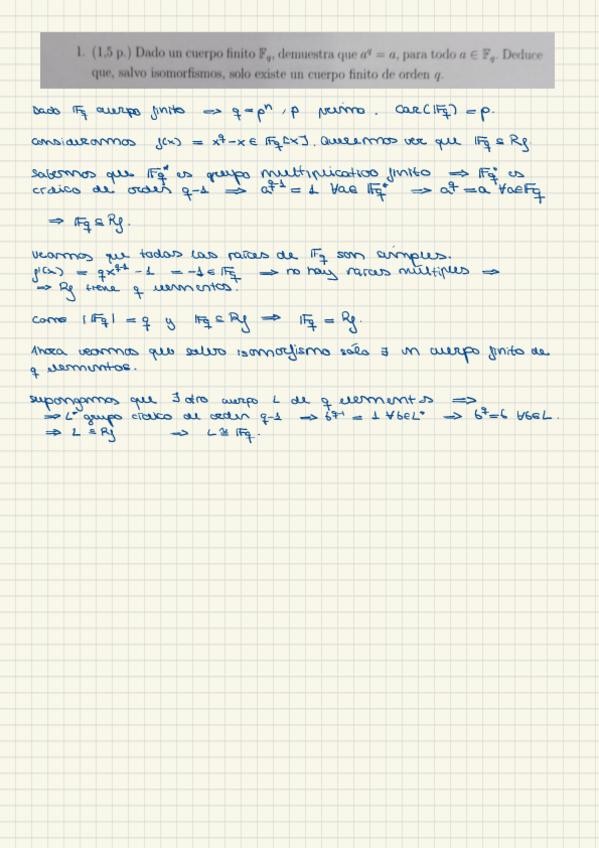 1. (1,5 p.) Dado un cuerpo finito 𝔽_q, demuestra que a^q = a, para todo a ∈ 𝔽_q. Deduce
que, salvo isomorfismos, solo existe un cuerpo finito de orden q.
Dado 𝔽_q cuerpo finito ⇒ q = p^n, p primo. Car(𝔽_q) = p.
Consideramos f(x) = x^q - x ∈ 𝔽_q[x]. Queremos ver que 𝔽_q ⊆ R_f
Sabemos que 𝔽_q* es grupo multiplicativo finito ⇒ 𝔽_q* es
cíclico de orden q-1 ⇒ a^{q-1} = 1 ∀a∈ 𝔽_q* ⇒ a^q = a ∀a∈𝔽_q
⇒ 𝔽_q ⊆ R_f.
Veamos que todas las raíces de 𝔽_q son simples.
f'(x) = qx^{q-1} - 1 = -1 ∈ 𝔽_q ⇒ no hay raíces múltiples ⇒
⇒ R_f tiene q elementos.
Como |𝔽_q| = q y 𝔽_q ⊆ R_f ⇒ 𝔽_q = R_f.
Ahora veamos que salvo isomorfismo sólo ∃ un cuerpo finito de
q elementos.
Supongamos que ∃ otro cuerpo L de q elementos ⇒
⇒ L* grupo cíclico de orden q-1 ⇒ b^{q-1} = 1 ∀b∈L* ⇒ b^q = b ∀b∈L.
⇒ L ⊆ R_f ⇒ L ≅ 𝔽_q.